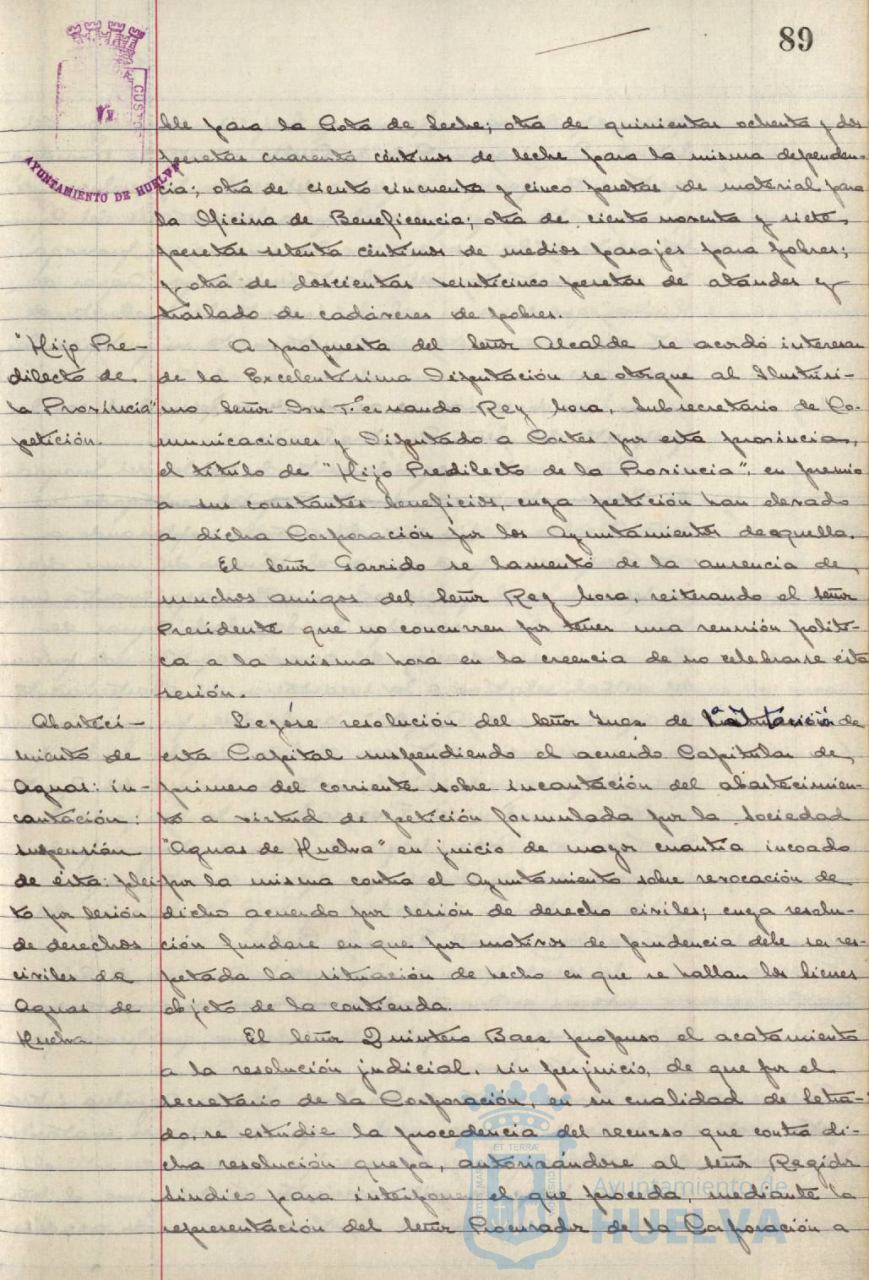 89
CUSTOS
AYUNTAMIENTO DE HUELVA
ble para la Gota de Leche; otra de quinientas ochenta y dos
pesetas cuarenta céntimos de leche para la misma dependen-
cia; otra de ciento cincuenta y cinco pesetas de material para
la Oficina de Beneficencia; otra de ciento noventa y siete
pesetas setenta céntimos de medios pasajes para pobres;
y otra de doscientas veinticinco pesetas de ataudes y
traslado de cadáveres de pobres.
"Hijo Pre-
dilecto de
la Provincia"
petición.
A propuesta del Señor Alcalde se acordó interesar
de la Excelentísima Diputación se otorgue al Ilustrísi-
mo Señor Don Fernando Rey Mora, Subsecretario de Co-
municaciones y Diputado a Cortes por esta provincia,
el título de "Hijo Predilecto de la Provincia", en premio
a sus constantes beneficios, cuya petición han elevado
a dicha Corporación por los Ayuntamientos de aquella.
El Señor Garrido se lamentó de la ausencia de
muchos amigos del Señor Rey Mora, reiterando el Señor
Presidente que no concurren por tener una reunión políti-
ca a la misma hora en la creencia de no celebrarse ésta
sesión.
Abasteci-
miento de
Aguas: in-
cautación:
suspensión
de ésta: plei-
to por lesión
de derechos
civiles de
Aguas de
Huelva
Leyóse resolución del Señor Juez de 1ª Instancia de
esta Capital suspendiendo el acuerdo Capitular de
primero del corriente sobre incautación del abastecimien-
to a virtud de petición formulada por la Sociedad
"Aguas de Huelva" en juicio de mayor cuantía incoado
por la misma contra el Ayuntamiento sobre revocación de
dicho acuerdo por lesión de derecho civiles; cuya resolu-
ción fundase en que por motivos de prudencia debe ser res-
petada la situación de hecho en que se hallan los bienes
objeto de la contienda.
El Señor Quintero Baez propuso el acatamiento
a la resolución judicial, sin perjuicio, de que por el
Secretario de la Corporación, en su cualidad de Letra-
do, se estudie la procedencia del recurso que contra di-
cha resolución quepa, autorizándose al Señor Regidor
Síndico para interponer el que proceda, mediante la
representación del Señor Procurador de la Corporación a
ET TERRÆ
Ayuntamiento de
HUELVA